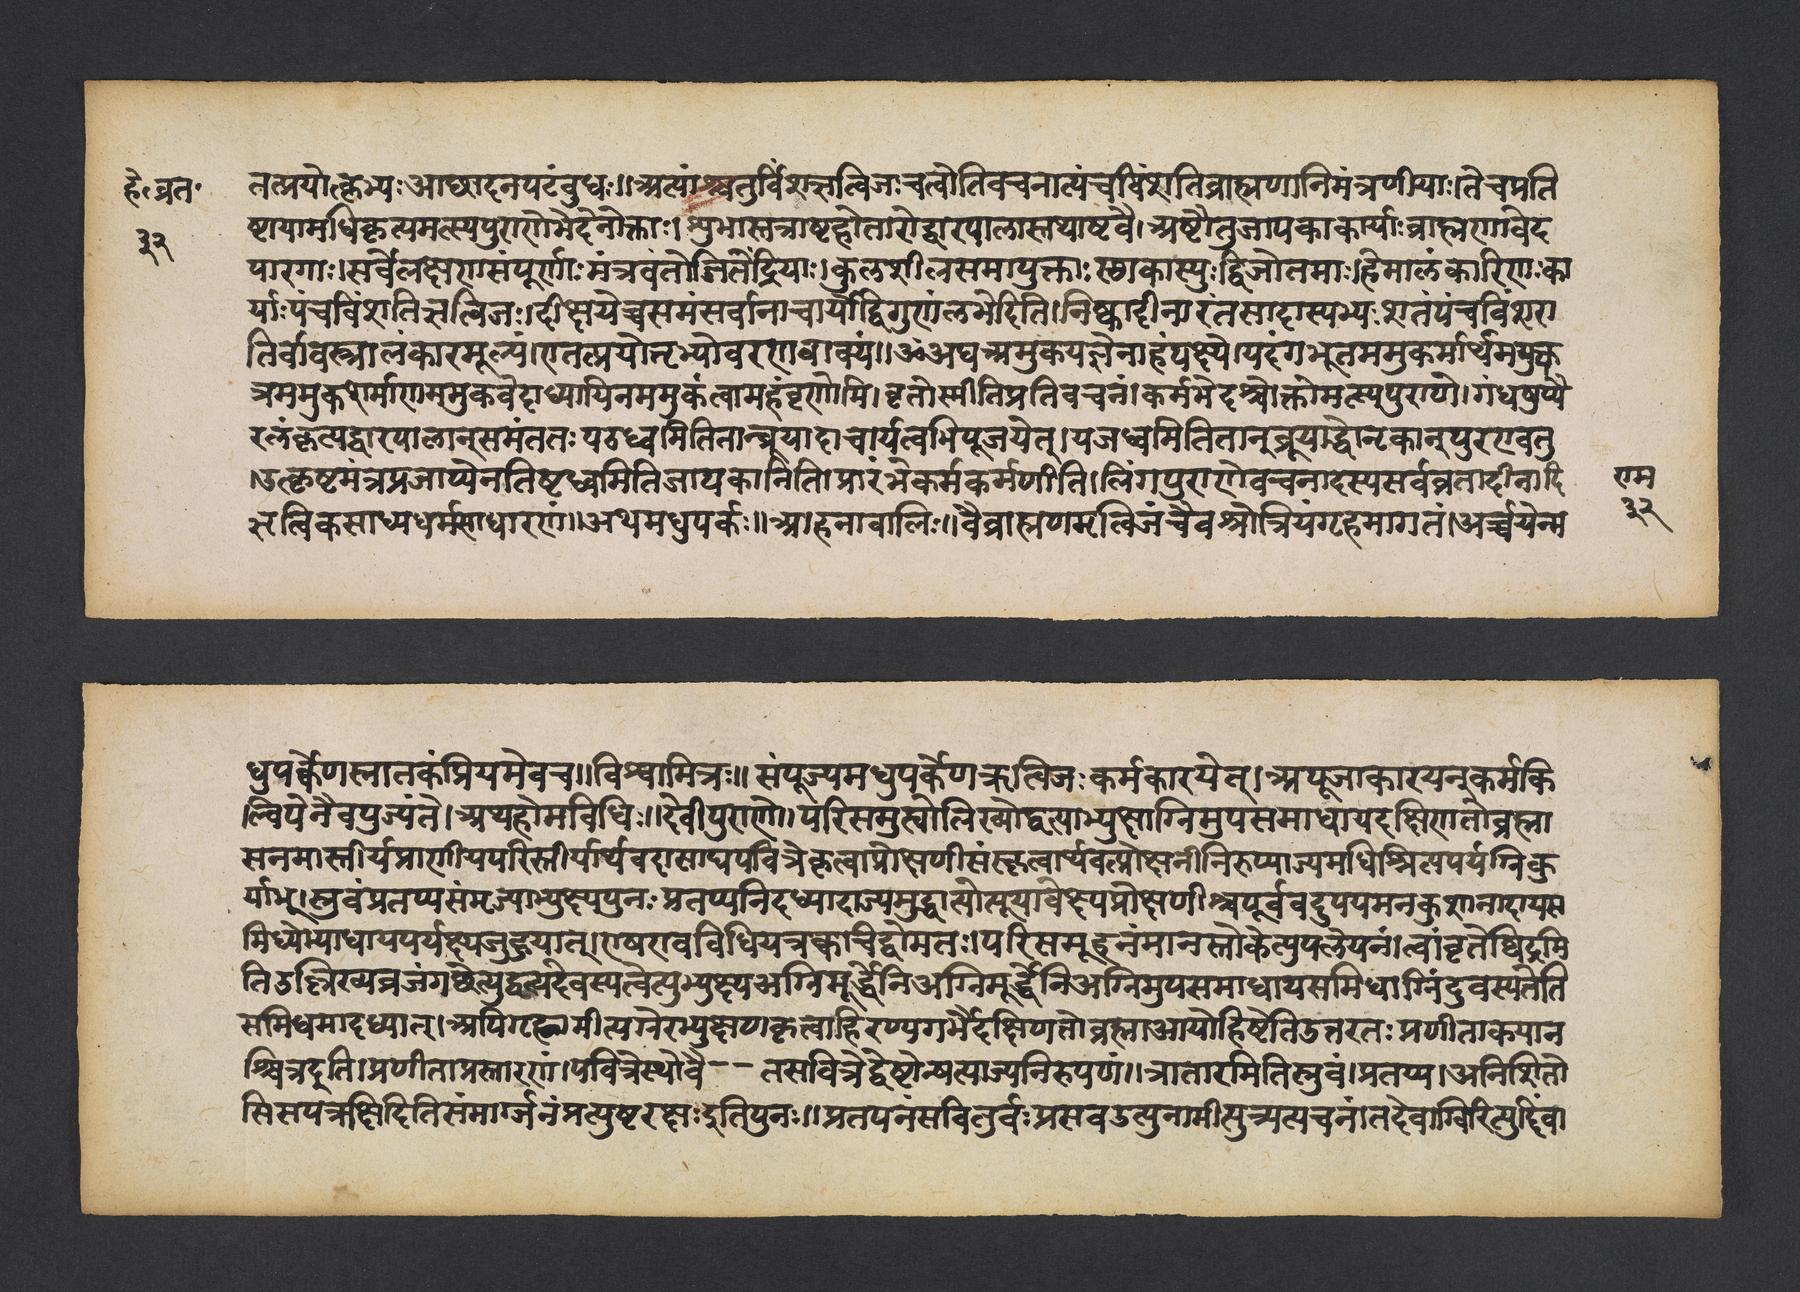 हे॰व्रत॰
३२
तत्प्रयोक्तृभ्यः आछादनपटंबुधः॥अत्यांश्चतुर्विंशत्सत्विजःचत्वोतिवचनात्पंचविंशतिब्राह्मणानिमंत्रणीयाः।तेचप्रति
ष्टायामधिकृत्यमत्स्यपुराणेभेदेनोक्ताः।शुभास्तत्राष्टहोतारोद्वारपालास्तथाष्टवै।अष्टौतुजापकाकार्याःब्राह्मणावेद
पारगाः।सर्वलक्षणसंपूर्णाःमंत्रवंतोजितेंद्रियाः।कुलशीलसमायुक्ताःस्छापकास्युःद्विजोतमाः।हेमालंकारिणःका
र्याःपंचविंशतिऋत्विजः।दीक्षयेच्चसमंसर्वानाचार्योद्विगुणंलभेदिति।निष्कादीनारंतसादास्पभ्यःशतंपंचविंशरा
तिर्वावस्त्रालंकारमूल्यं।एतत्प्रयोतृभ्योवरणवाक्यं॥ॐअद्यअमुकयज्ञेनाहंपक्ष्ये।पदंगभूतममुकर्मार्थममुक
त्रममुकशर्माणममुकवेदाध्यायिनममुकंत्वामहंवृणोमि।वृतोस्मीतिप्रतिवचनं।कर्मभेदश्चोक्तोमत्स्यपुराणे।गंधपुष्पै
रलंकृत्यद्वारपालानुसमंततःपठध्वमितितान्ब्रूयादाचार्यत्वभिपूजयेत्।यजध्वमितितानुब्रूयाद्धोतृकानुपुरएवतु
।उत्कृष्टमंत्रप्रजाप्येनतिष्टध्वमितिजापकानिति।प्रारंभेकर्मकर्मणीति।लिंगपुराणेवचनादस्यसर्वव्रतादीनादि
ऋत्विकसाध्यधर्मसाधारणं॥अथमधुपर्कः॥अाहनावालिः॥वैब्राह्मणमृत्विजंचैवश्रोत्रियंगृहमागतं।अर्च्चयेन्म
राम
३२
धुपर्केणस्नातकंप्रियमेवच॥विश्वामित्रः॥संपूज्यमधुपर्केणऋत्विजःकर्मकारयेत्।अपूजाकारयनुकर्मकि
ल्विषेनैवपुज्यंते।अथहोमविधिः॥देवीपुराणे॥परिसमुह्योलिख्योद्धृत्याभ्युक्षाग्निमुपसमाधायदक्षिणतोब्रह्मा
सनमास्तीर्यप्राणीयपरिस्तीर्यार्थवदासाद्यपवित्रेकृत्वाप्रोक्षणीसंस्कृत्वार्थवत्प्रोक्षनीनिरुप्याज्यमधिश्रित्यपर्यग्निकु
र्याभ्।स्रुवंप्रतप्यसंमृज्याभ्युक्ष्यपुनःप्रतप्यनिदध्यादाज्यमुद्वास्योत्सूयावेक्ष्यप्रोक्षणीश्चपूर्ववदुपयमनकुशानादायस
मिध्येभ्याधायपर्युक्ष्यजुहुयात्।एषएवविधियत्रक्वाचिद्धोमतः।परिसमूहनंमानस्तोकेत्युपलेपनं।त्वांवृतेष्विद्रमि
तिउल्लिख्यव्रजंगछेत्युद्धृत्यदेवस्यत्वेत्युभ्युक्ष्यअग्निमूर्द्धेनिअग्निमूर्द्धेनिअग्निमुपसमाधायसमिधाग्निंदुवस्यतेति
समिधमादध्यात्।अपिगृह्णामीत्यग्नेरभ्युक्षणकृत्वाहिरण्यगर्भैर्दक्षिणतोब्रह्माआपोहिष्टेतिउत्तरतःप्रणीताकयान
श्चित्रदूति।प्रणीताप्रस्तारणं।पवित्रेस्थोवै-- तसवित्रेद्वेष्टोन्यत्याज्यनिरुपणं॥त्रातारमितिस्रुवं।प्रतप्य।अनिशितो
सिसपत्नक्षिदितिसंमार्ज्जनंप्रत्युष्टरक्षःदुतिपुनः॥प्रतपनंसवितुर्वःप्रसवउत्पुनामीत्युत्र्यत्पचनं।तदेवाग्विरित्युदिंवा